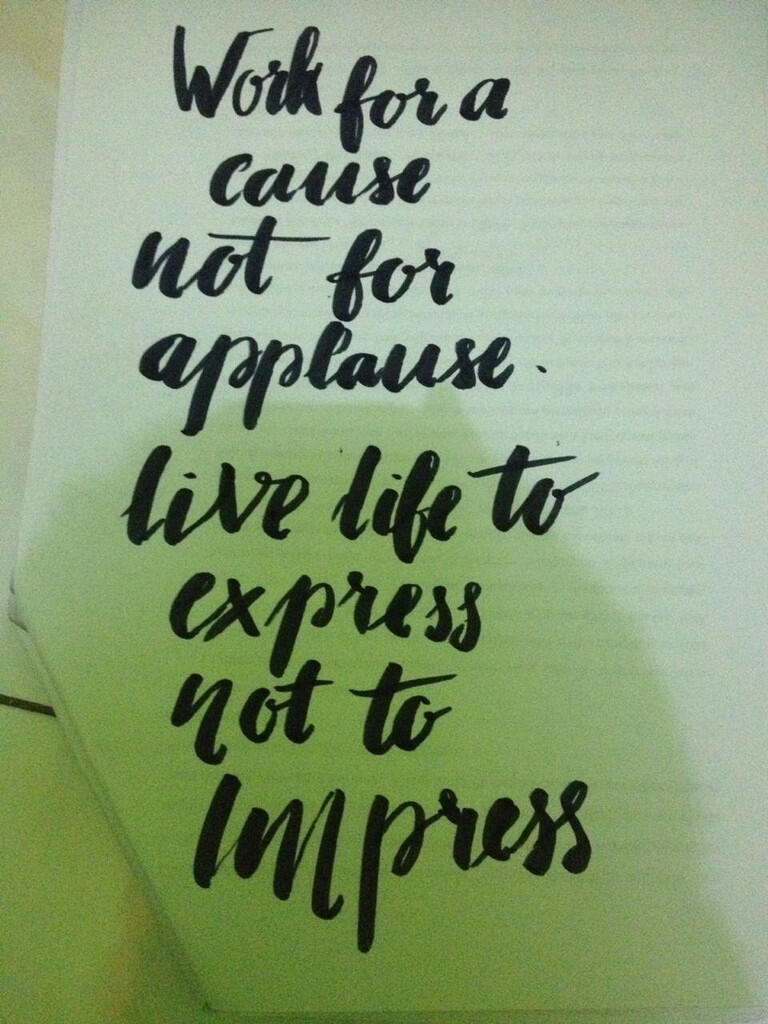 Work for a
cause
not for
applause.
live life to
express
not to
Impress